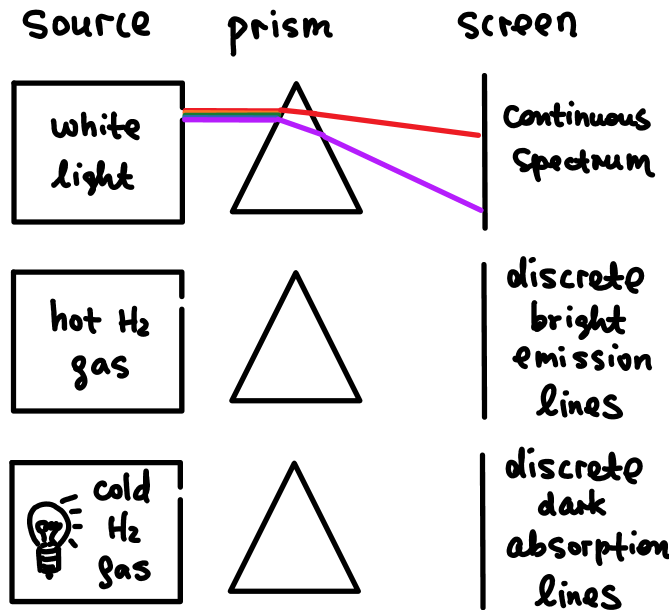 Source prism screen
white
light
continuous
spectrum
hot H₂
gas
discrete
bright
emission
lines
cold
H₂
gas
discrete
dark
absorption
lines